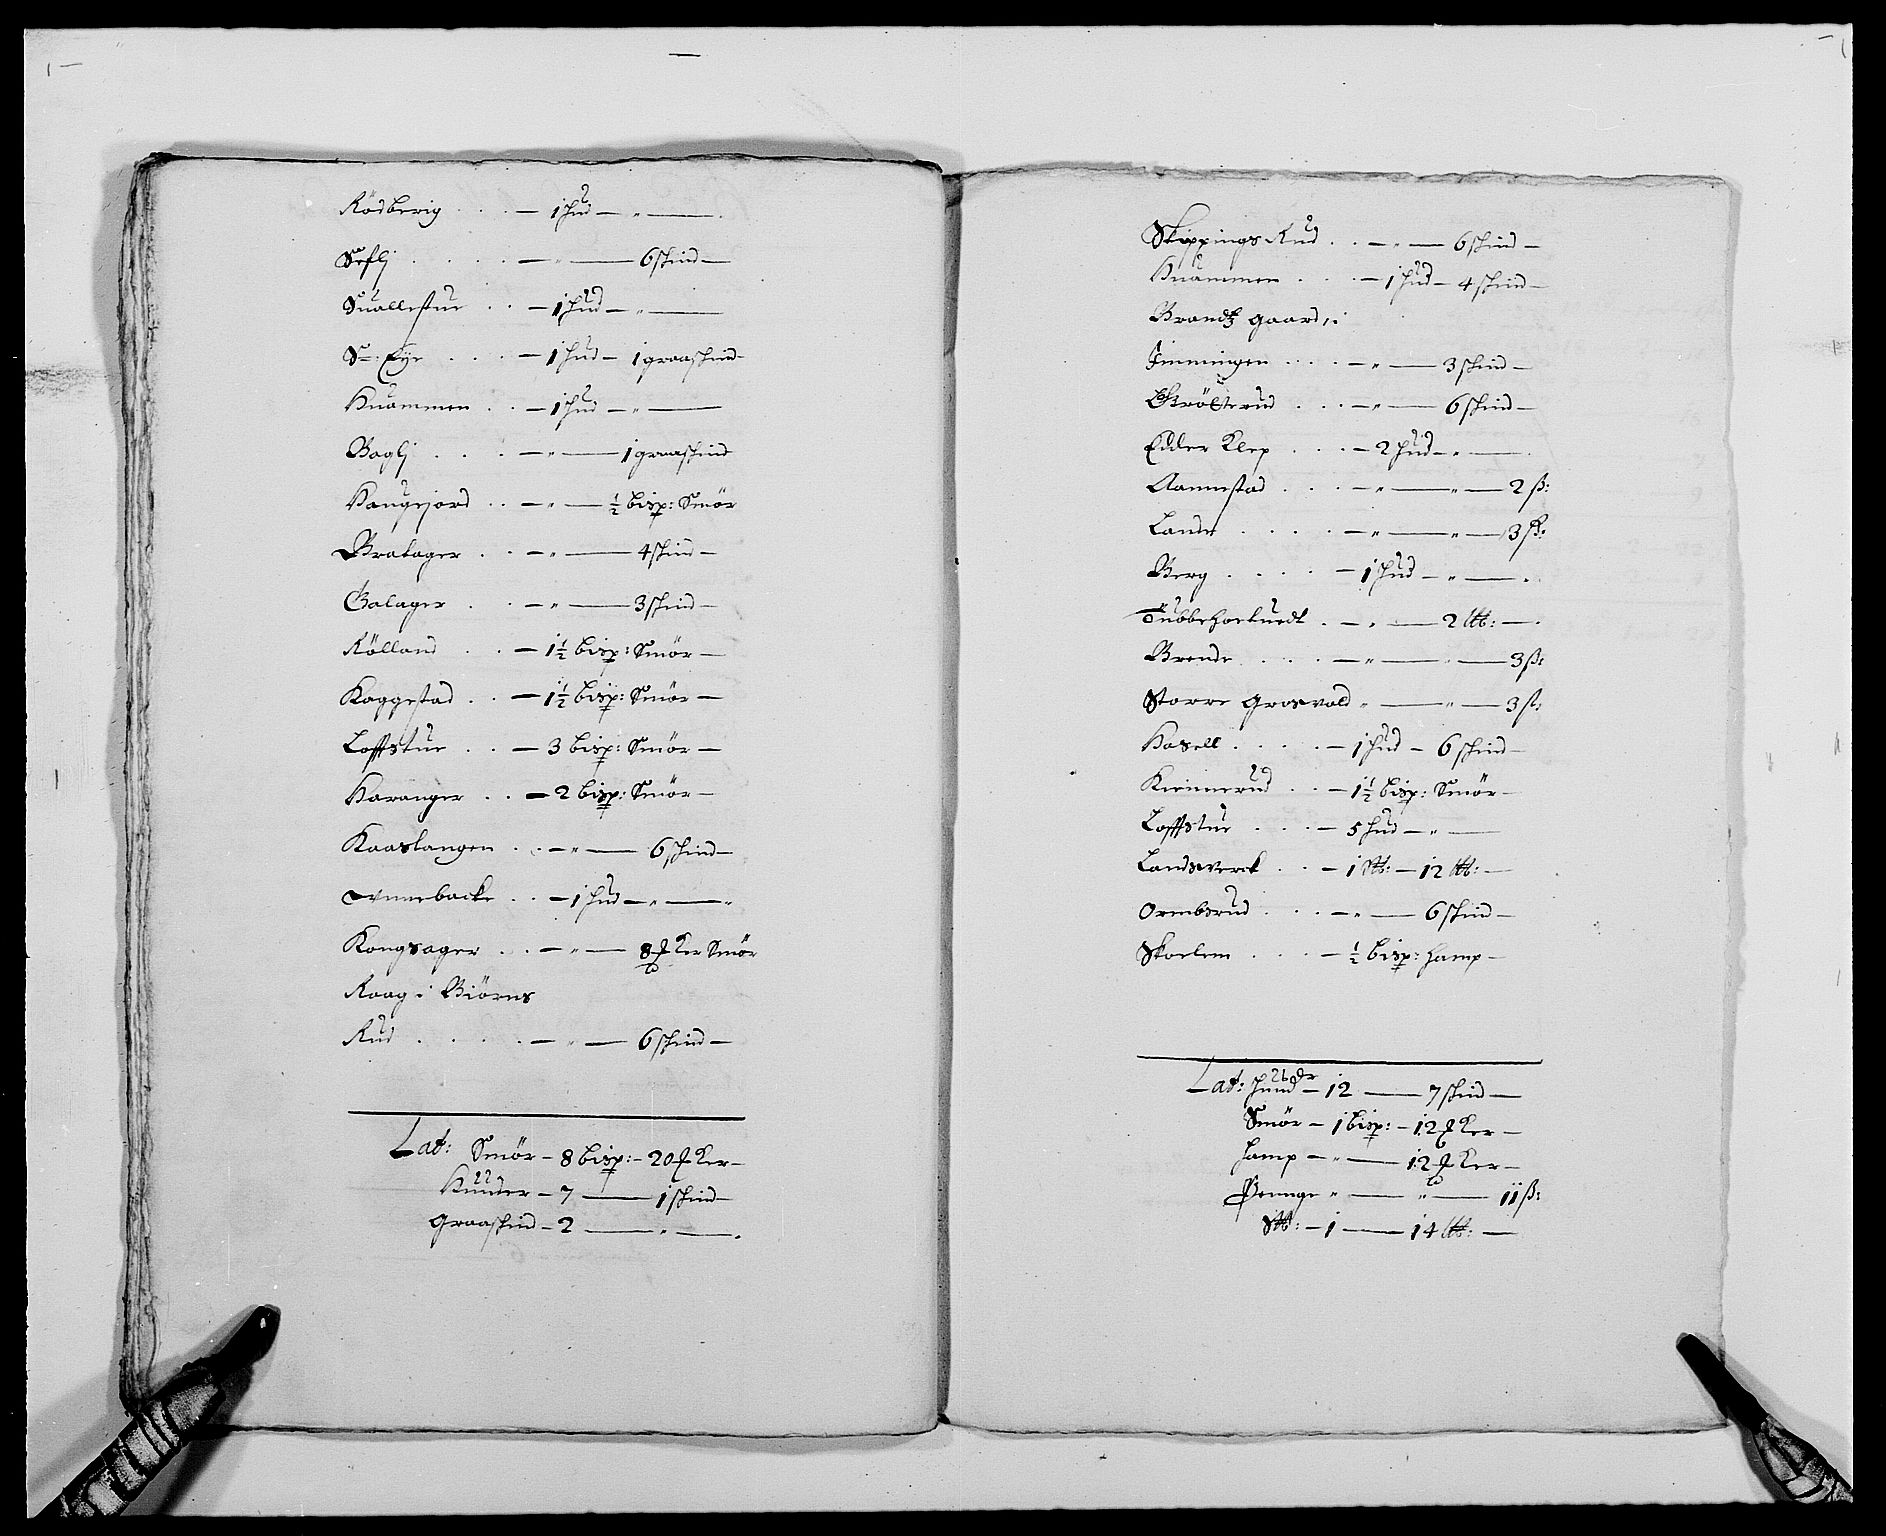 Rödberig . . . — 1 hud — " —— .
Sefli . . . . — " —— 6 skind —
Suallestue . . — 1 hud — " ——
Sr: Eye . . . — 1 hud — 1 graaskind —
Kuammen . . — 1 hud — " ——
Bagli . . . — " —— 1 graaskind
Haugejord . . — " —— ½ bisp: Smör
Brabager . . — " —— 4 skind —
Galager . . — " —— 3 skind —
Rölland . . — 1½ bisp: Smör —
Kaggestad . . — 1½ bisp: Smör —
Lofftstue . . — 3 bisp: Smör —
Haranger . . — 2 bisp: Smör —
Kaaslangen . . — " —— 6 skind —
Winnebacke . . — 1 hud — " —— "
Kongsager . . — " —— 8 ker Smör
Raag i Biörns
Rud . . . . — " —— 6 skind —
Lat: Smör — 8 bisp: — 20 ker —
Huuder — 7 —— 1 skind —
Graaskind — 2 —— " —— .
Skippings Rud . . — " —— 6 skind —
Kuammen . . . — 1 hud — 4 skind —
Brandtz gaard ,:
Jimmingen . . . — " —— 3 skind —
Grölterud . . . — " —— 6 skind —
Edder Klep . . . — 2 hud — " —— .
Aannestad . . . — " —— " — 2 ß:
Lande . . . . — " —— " — 3 ß:
Berg . . . . — 1 hud — " —— .
Tubbehoeluedt . — " —— 2 lb: — .
Brende . . . . — " —— " —— 3 ß:
Storre Grosvold " —— " — 3 ß:
Hasell . . . . — 1 hud — 6 skind —
Kiennerud . . — 1½ bisp: Smör —
Lofftstue . . . — 5 hud — " ——
Landsverck . . — 1 Slb: — 12 lb: —
Ormbsrud . . . — " —— 6 skind —
Skoelem . . . — ½ bisp: hamp —
Lat: huuder — 12 —— 7 skind —
Smör — 1 bisp: — 12 ker —
hamp — " —— 12 ker —
Penge " —— " —— 11 ß:
Slb: — 1 —— 14 lb: —